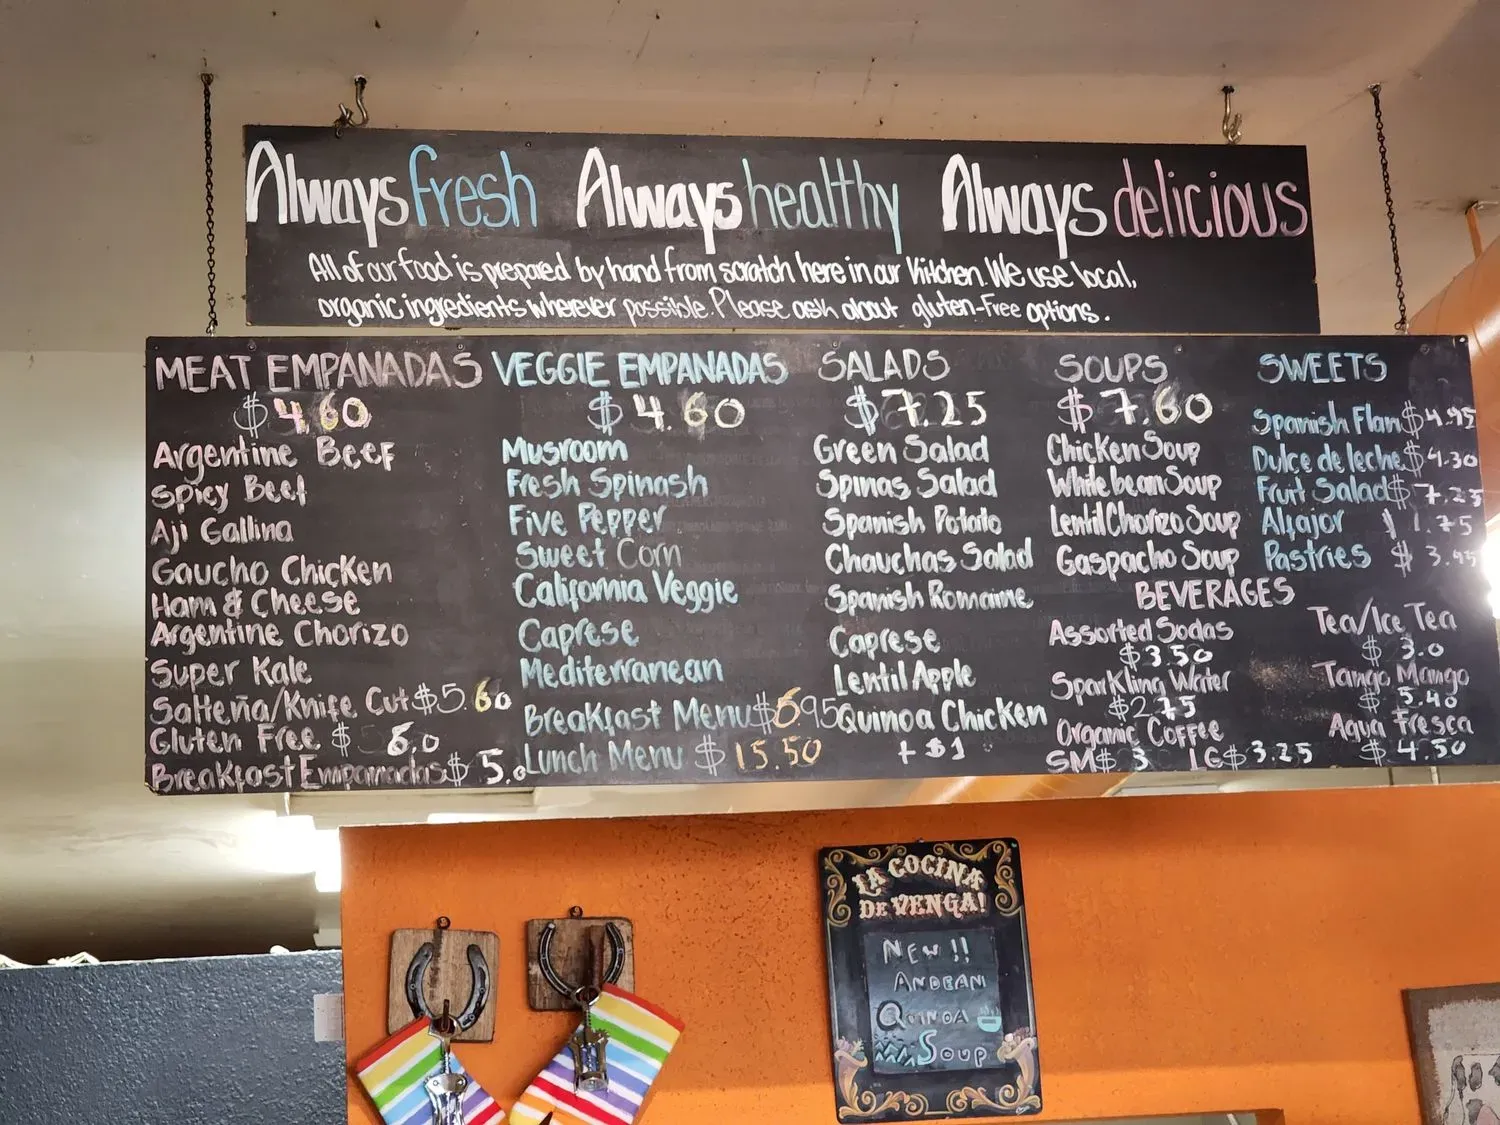 Always fresh Always healthy Always delicious
All of our food is prepared by hand from scratch here in our kitchen. We use local,
organic ingredients wherever possible. Please ask about gluten-free options.
MEAT EMPANADAS
$4.60
Argentine Beef
Spicy Beef
Aji Gallina
Gaucho Chicken
Ham & Cheese
Argentine Chorizo
Super Kale
Salteña/Knife Cut $5.60
Gluten Free $ 6.0
Breakfast Empanadas $ 5.0
VEGGIE EMPANADAS
$4.60
Musroom
Fresh Spinash
Five Pepper
Sweet Corn
California Veggie
Caprese
Mediterranean
Breakfast Menu $6.95
Lunch Menu $15.50
SALADS
$7.25
Green Salad
Spinas Salad
Spanish Potato
Chauchas Salad
Spanish Romaine
Caprese
Lentil Apple
Quinoa Chicken
+ $1
SOUPS
$7.60
Chicken Soup
White bean Soup
Lentil Chorizo Soup
Gaspacho Soup
SWEETS
Spanish Flan $4.95
Dulce de leche $4.30
Fruit Salad $7.25
Alfajor $1.75
Pastries $3.45
BEVERAGES
Assorted Sodas
$3.50
Sparkling Water
$2.75
Organic Coffee
SM $ 3 LG $3.25
Tea/Ice Tea
$ 3.0
Tango Mango
$ 5.40
Agua Fresca
$ 4.50
LA COCINA
DE VENGA!
NEW!!
ANDEAN
QUINOA
SOUP